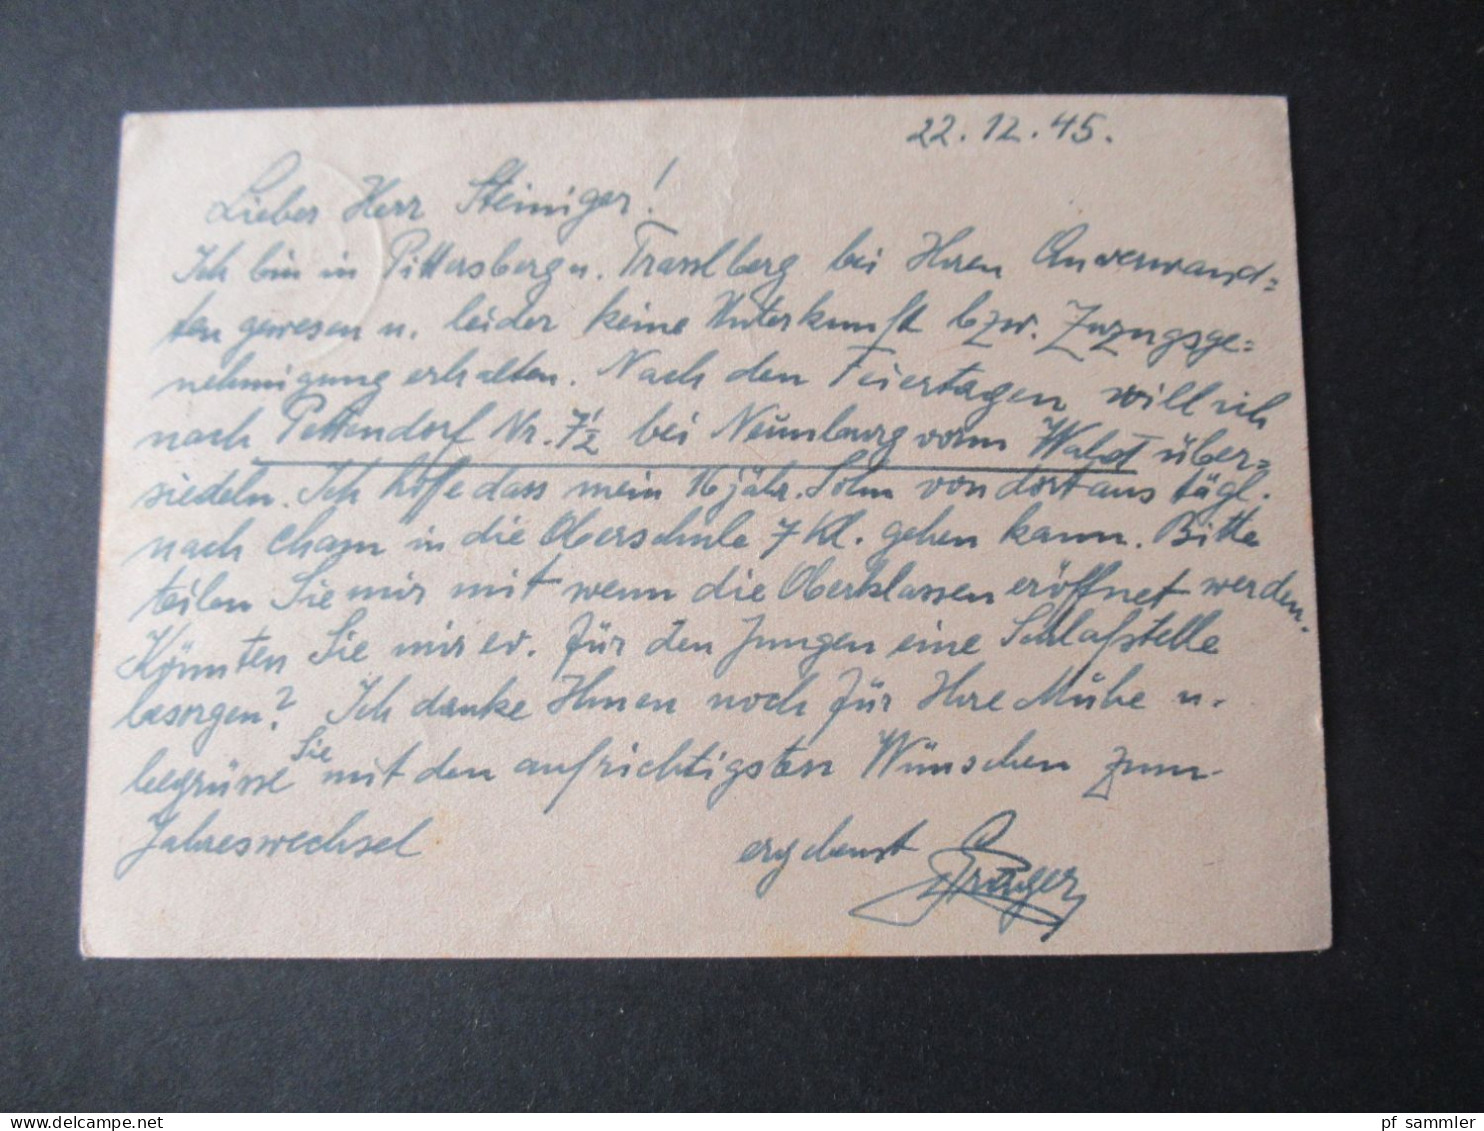 22.12.45.
Lieber Herr Steiniger!
Ich bin in Pittersberg u. Trasslberg bei Ihren Anverwand=
ten gewesen u. leider keine Unterkunft bzw. Zuzugsge=
nehmigung erhalten. Nach den Feiertagen will ich
nach Pettendorf Nr. 7 1/2 bei Neunburg vorm Wald über=
siedeln. Ich hoffe dass mein 16 jähr. Sohn von dort aus tägl.
nach Cham in die Oberschule 7 Kl. gehen kann. Bitte
teilen Sie mir mit wenn die Oberklassen eröffnet werden.
Könnten Sie mir ev. für den Jungen eine Schlafstelle
besorgen? Ich danke Ihnen noch für Ihre Mühe u.
begrüsse Sie mit den aufrichtigsten Wünschen zum
Jahreswechsel ergebenst
pf sammler
www.delcampe.net